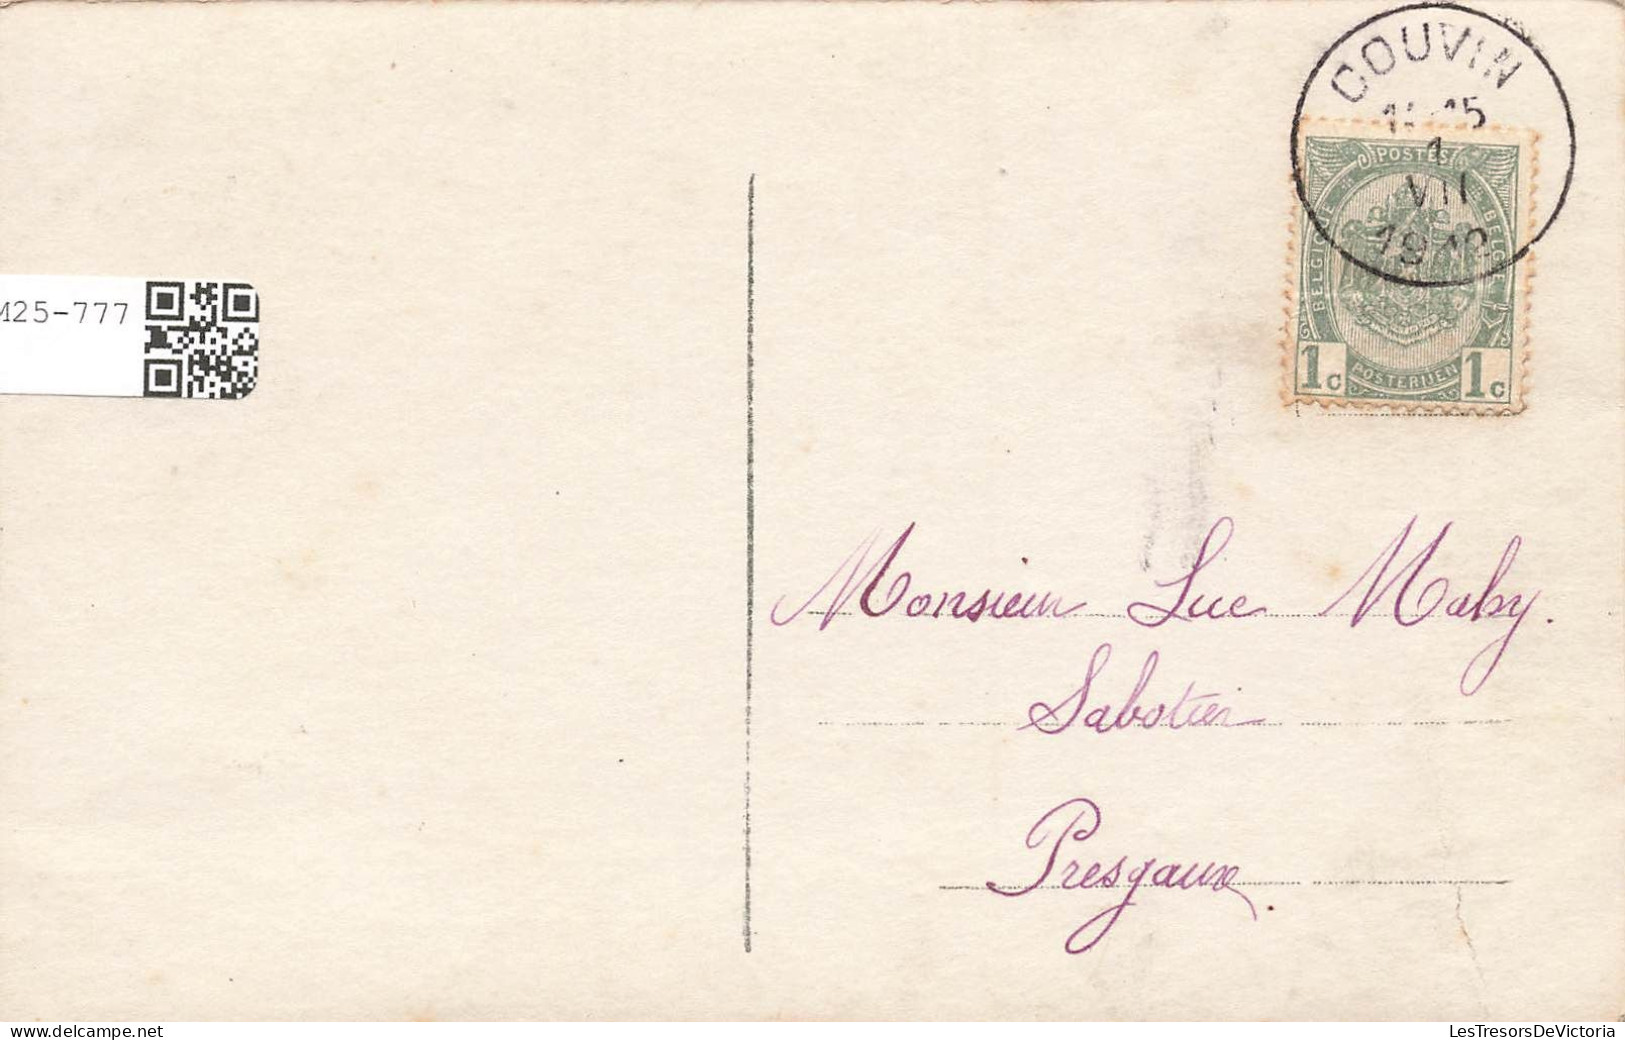 COUVIN
15
1
VII
POSTES
BELGIQUE
BELGIË
POSTERIJEN
1c 1c
M25-777
Monsieur Luc Maby.
Sabotier
Presgaux
delcampe.net
LesTresorsDeVictoria